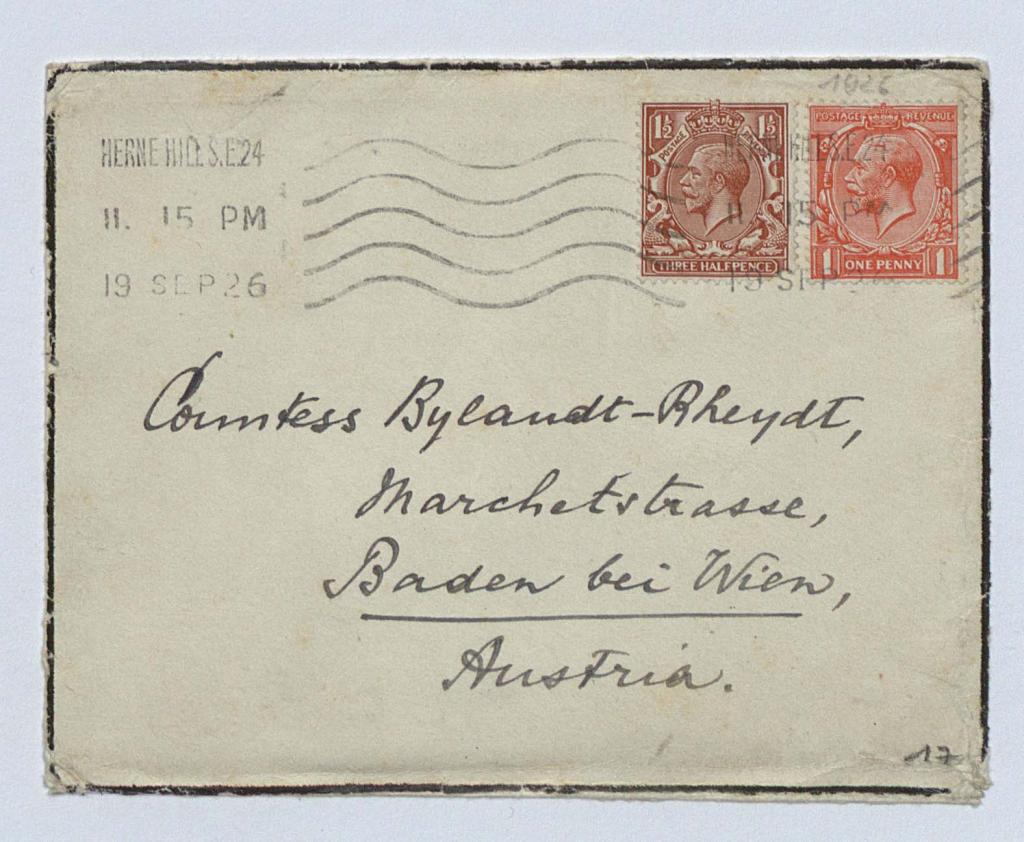 1926
HERNE HILL S.E.24
11. 15 PM
19 SEP 26
1½ 1½
POSTAGE REVENUE
THREE HALFPENCE
POSTAGE REVENUE
1 ONE PENNY 1
HERNE HILL S.E.24
11. 15 PM
19 SEP
Countess Bylandt-Rheydt,
Marchetstrasse,
Baden bei Wien,
Austria.
17